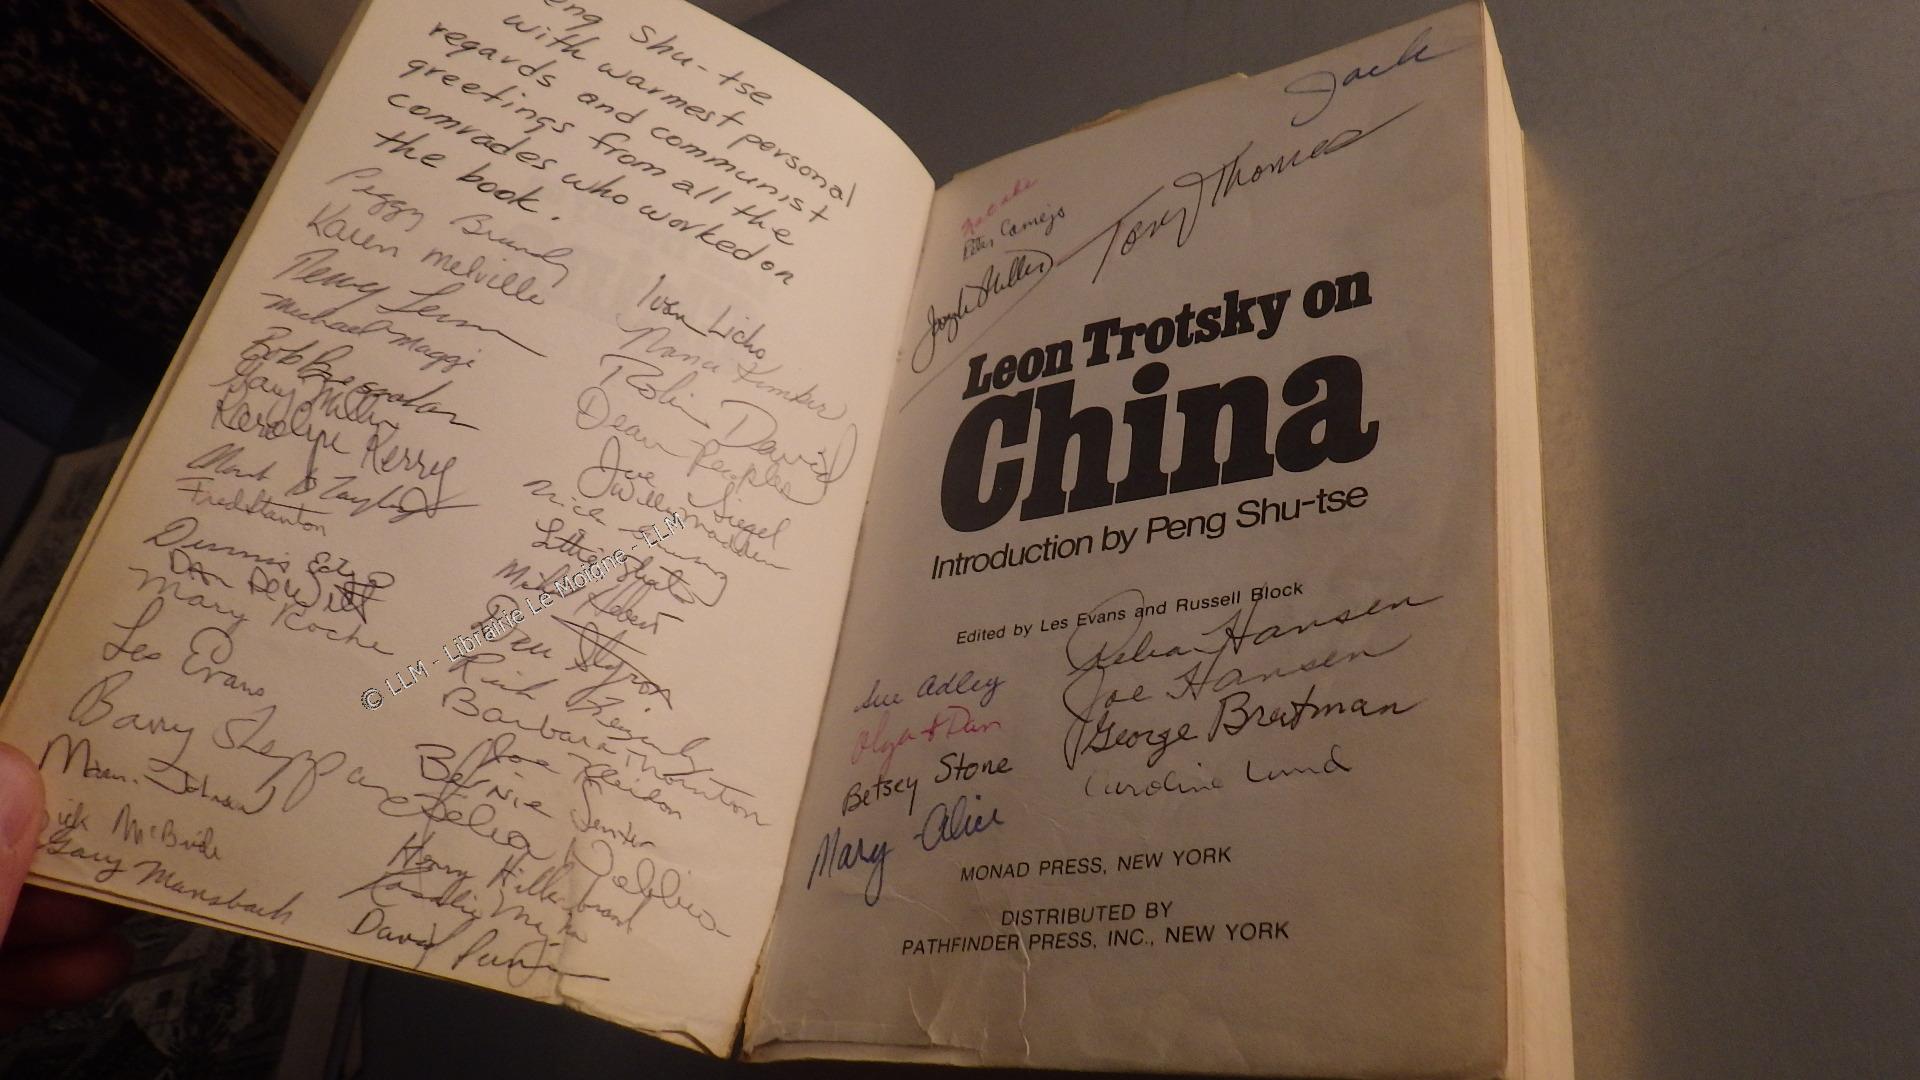 Shu-tse
with warmest personal
regards and communist
greetings from all the
comrades who worked on
the book.
Peggy Brundy
Karen Melville
Michael Maggi
Bob Bresnahan
Gary Miller
Karolyn Kerry
Fred Stanton
Dennis
DAN DeWitt
Mary Roche
Les Evans
Barry Sheppard
Johnson
McBride
Gary Mansbach
Ivan Licho
Nana Kimber
Robin David
Dean Peoples
Joe Siegel
Will
Mike Hebert
Styron
Rich
Barbara Thornton
Joe
Bernie Senter
Celia
Henry Hillenbrand
David
© LLM - Librairie Le Moigne - LLM
Jack
Tony Thomas
Natalie
Peter Camejo
Leon Trotsky on
China
Introduction by Peng Shu-tse
Edited by Les Evans and Russell Block
Reba Hansen
Joe Hansen
George Breitman
Caroline Lund
Sue Adley
Olga & Dan
Betsey Stone
Mary-Alice
MONAD PRESS, NEW YORK
DISTRIBUTED BY
PATHFINDER PRESS, INC., NEW YORK